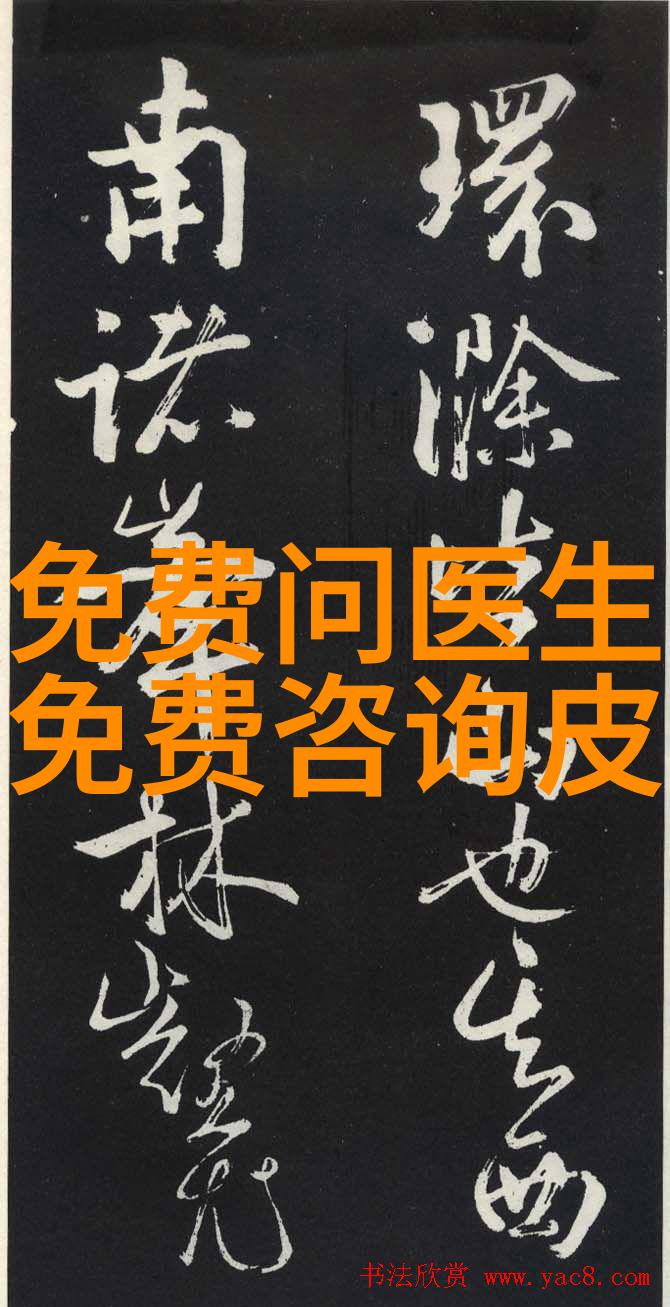 環滁皆山也其西
南諸峯林壑尤
免费问医生
免费咨询皮
书法欣赏 www.yac8.com